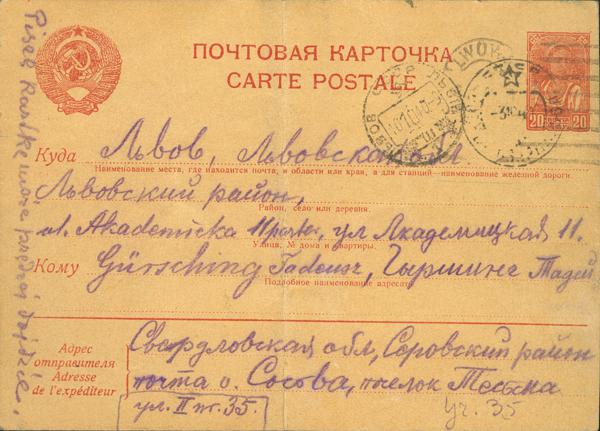 ПОЧТОВАЯ КАРТОЧКА
CARTE POSTALE
LWOW
20 20
Куда Львов, Львовская обл
Наименование места, где находится почта, и области или края, а для станций—наименование железной дороги.
Львовский район,
Район, село или деревня.
ul. Akademicka 11 parter, ул Академицкая 11.
Улица, № дома и квартиры.
Кому Gürsching Tadeusz, Гыршинг Тадеуш
Подробное наименование адресата
Адрес
отправителя
Adresse
de l'expéditeur
Свердловская обл, Серовский район
почта о. Сосьва, поселок Тесьма
ул. II № 35.
уч. 35
Pisz Kartkę może prędzej dojdzie.